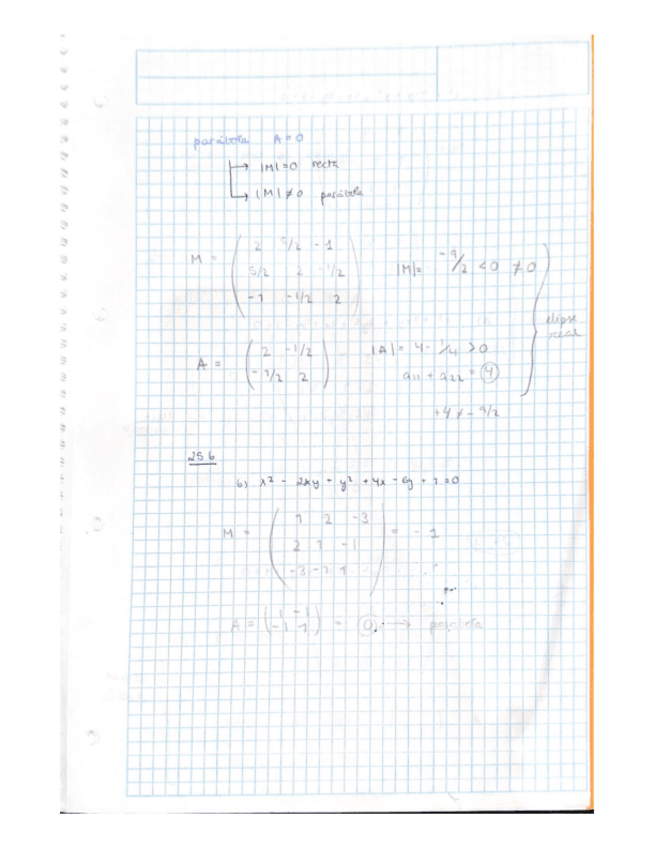 parábola A = 0
→ |M| = 0 recta
→ |M| ≠ 0 parábola
M = ( 2 5/2 -1
5/2 2 -1/2
-1 -1/2 2 ) |M| = -9/2 < 0 ≠ 0
elipse real
A = ( 2 -1/2
-1/2 2 ) |A| = 4 - 1/4 > 0
a11 + a22 = 4
+4 x - 9/2
256
b) x² - 2xy + y² + 4x - 6y + 1 = 0
M = ( 1 2 -3
2 1 -1
-3 -1 1 ) = - 1
A = ( 1 -1
-1 1 ) = 0 → parábola